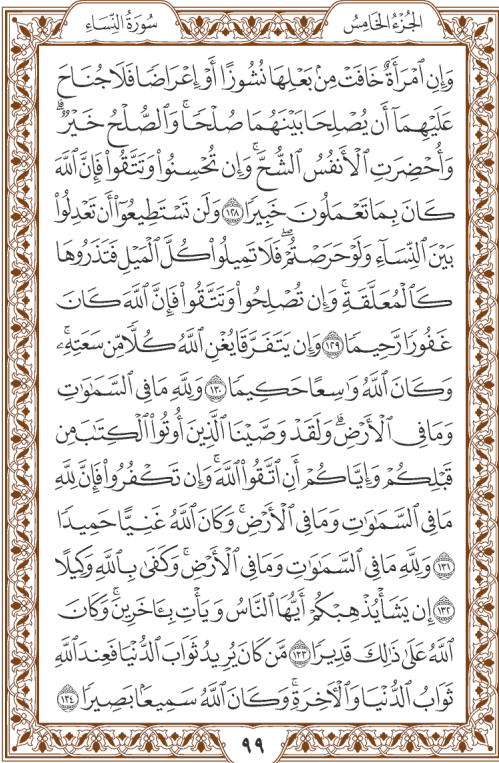 سُورَةُ النِّسَاءِ الجُزْءُ الخَامِسُ
وَإِنِ ٱمْرَأَةٌ خَافَتْ مِنۢ بَعْلِهَا نُشُوزًا أَوْ إِعْرَاضًا فَلَا جُنَاحَ
عَلَيْهِمَآ أَن يُصْلِحَا بَيْنَهُمَا صُلْحًاۚ وَٱلصُّلْحُ خَيْرٌۗ
وَأُحْضِرَتِ ٱلْأَنفُسُ ٱلشُّحَّۚ وَإِن تُحْسِنُوا۟ وَتَتَّقُوا۟ فَإِنَّ ٱللَّهَ
كَانَ بِمَا تَعْمَلُونَ خَبِيرًا ١٢٨ وَلَن تَسْتَطِيعُوٓا۟ أَن تَعْدِلُوا۟
بَيْنَ ٱلنِّسَآءِ وَلَوْ حَرَصْتُمْۖ فَلَا تَمِيلُوا۟ كُلَّ ٱلْمَيْلِ فَتَذَرُوهَا
كَٱلْمُعَلَّقَةِۚ وَإِن تُصْلِحُوا۟ وَتَتَّقُوا۟ فَإِنَّ ٱللَّهَ كَانَ
غَفُورًا رَّحِيمًا ١٢٩ وَإِن يَتَفَرَّقَا يُغْنِ ٱللَّهُ كُلًّا مِّن سَعَتِهِۦۚ
وَكَانَ ٱللَّهُ وَٰسِعًا حَكِيمًا ١٣٠ وَلِلَّهِ مَا فِى ٱلسَّمَٰوَٰتِ
وَمَا فِى ٱلْأَرْضِۗ وَلَقَدْ وَصَّيْنَا ٱلَّذِينَ أُوتُوا۟ ٱلْكِتَٰبَ مِن
قَبْلِكُمْ وَإِيَّاكُمْ أَنِ ٱتَّقُوا۟ ٱللَّهَۚ وَإِن تَكْفُرُوا۟ فَإِنَّ لِلَّهِ
مَا فِى ٱلسَّمَٰوَٰتِ وَمَا فِى ٱلْأَرْضِۚ وَكَانَ ٱللَّهُ غَنِيًّا حَمِيدًا
١٣١ وَلِلَّهِ مَا فِى ٱلسَّمَٰوَٰتِ وَمَا فِى ٱلْأَرْضِۚ وَكَفَىٰ بِٱللَّهِ وَكِيلًا
١٣٢ إِن يَشَأْ يُذْهِبْكُمْ أَيُّهَا ٱلنَّاسُ وَيَأْتِ بِـَٔاخَرِينَۚ وَكَانَ
ٱللَّهُ عَلَىٰ ذَٰلِكَ قَدِيرًا ١٣٣ مَّن كَانَ يُرِيدُ ثَوَابَ ٱلدُّنْيَا فَعِندَ ٱللَّهِ
ثَوَابُ ٱلدُّنْيَا وَٱلْـَٔاخِرَةِۚ وَكَانَ ٱللَّهُ سَمِيعًۢا بَصِيرًا ١٣٤
٩٩